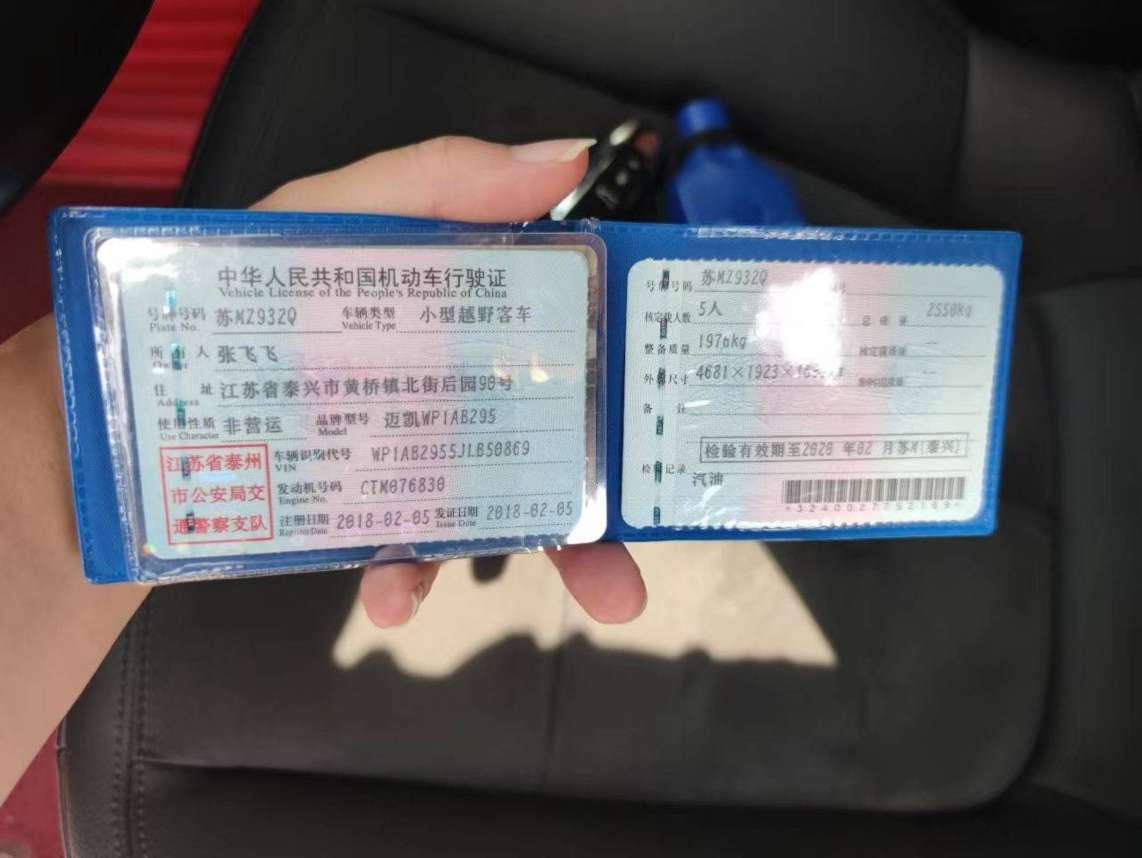 中华人民共和国机动车行驶证
Vehicle License of the People's Republic of China
号牌号码 苏MZ932Q 车辆类型 小型越野客车
Plate No. Vehicle Type
所有人 张飞飞
Owner
住 址 江苏省泰兴市黄桥镇北街后园90号
Address
使用性质 非营运 品牌型号 迈凯WP1AB295
Use Character Model
江苏省泰州
市公安局交
通警察支队
车辆识别代号 WP1AB2955JLB50869
VIN
发动机号码 CTM076830
Engine No.
注册日期 2018-02-05 发证日期 2018-02-05
Register Date Issue Date
号牌号码 苏MZ932Q 号
核定载人数 5人 总质量 2550kg
整备质量 1976kg 核定载质量
外廓尺寸 4681×1923×
备 注
检验有效期至2020 年02 月苏M(泰兴)
检验记录
汽油